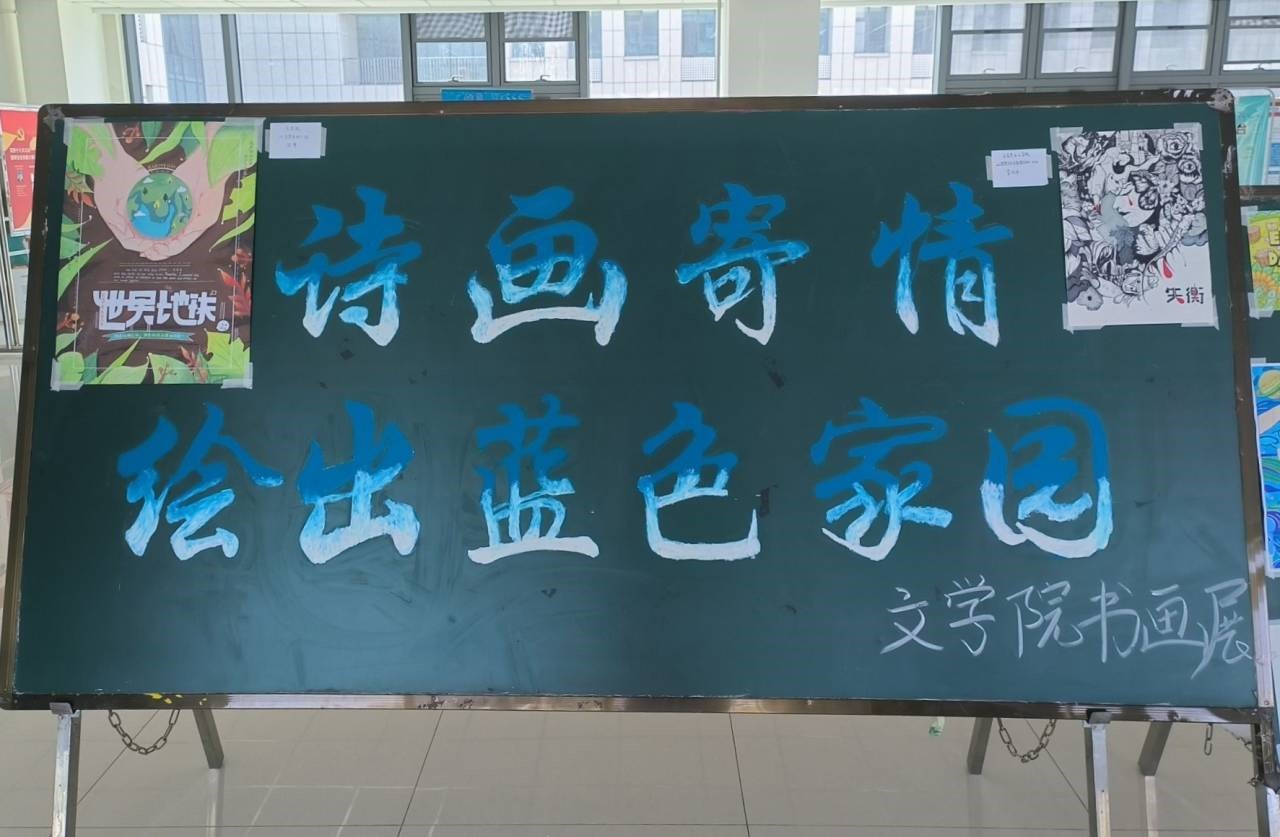 诗画寄情
绘出蓝色家园
文学院书画展
世界地球
失衡